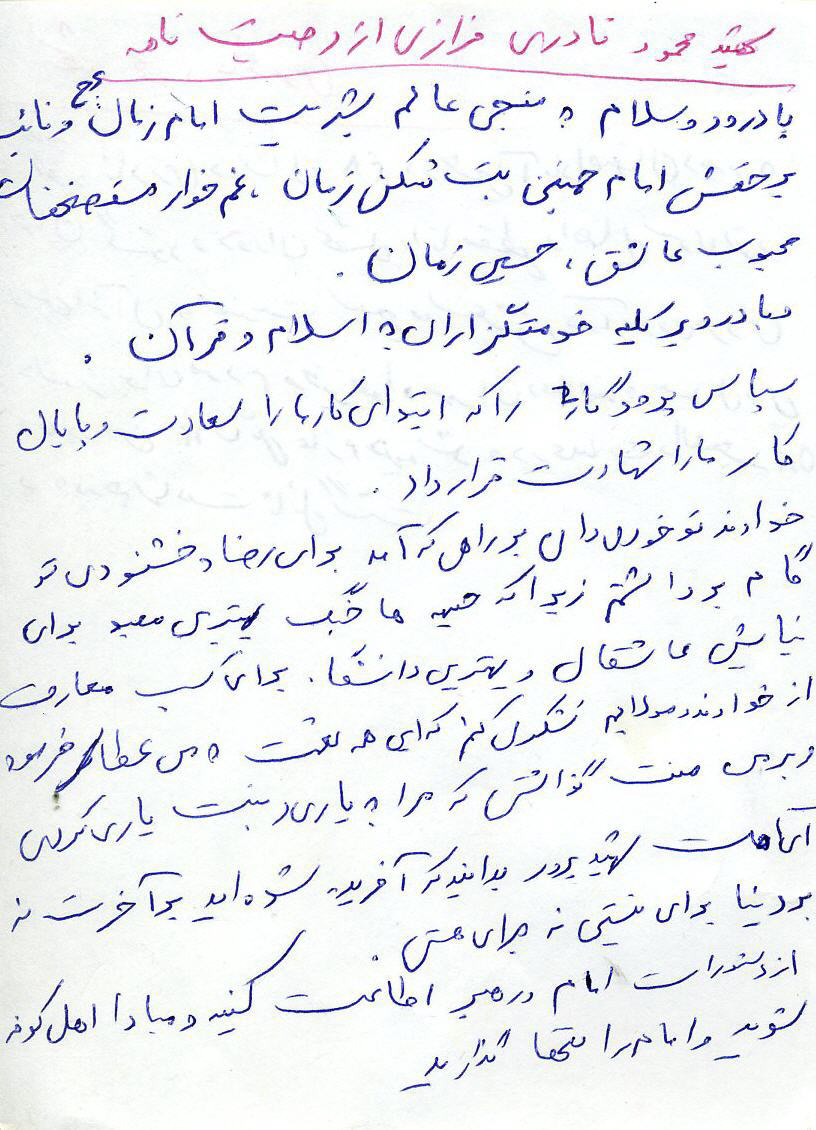 شهید محمود نادری فرازی از وصیت نامه
با درود و سلام به منجی عالم بشریت امام زمان عج و نائب
بر حقش امام خمینی بت شکن زمان ، غم خوار مستضعفان
محبوب عاشق ، حسین زمان .
و با درود بر کلیه خدمتگزاران به اسلام و قرآن .
سپاس پروردگار را که ابتدای کار ما را سعادت و پایان
کار ما را شهادت قرار داد .
خداوند تو خود می دانی بر راهی که آمد برای رضا و خشنودی تو
گام برداشتم زیرا که جبهه ها جنگ بهترین معبد برای
نیایش عاشقان و بهترین دانشگا . برای کسب معارف
از خداوند و مولایم تشکر می کنم که این همه نعمت به من عطا فرمود
و بر من منت گذاشتی که مرا به یاری دینت یاری کردی
ای امت شهید پرور بدانید که آفریده شده اید بر آخرت نه
بر دنیا برای نیستی نه برای هستی .
از دستورات امام و رهبر اطاعت کنید و مبادا اهل کوفه
شوید و امام را تنها گذارید